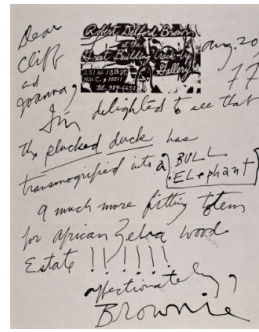 Dear
Cliff
ad
Joanna,
Robert Delford Brown
at the
Great Building Crack-Up
Gallery
251 W. 13th St.
NYC, 10011
Tel. 989-6451
Aug. 20
77
I'm delighted to see that
the plucked duck has
transmogrified into a BULL
ELephant
a much more fitting totem
for african Zebra Wood
Estate !!!!!!
affectionately,
Brownie